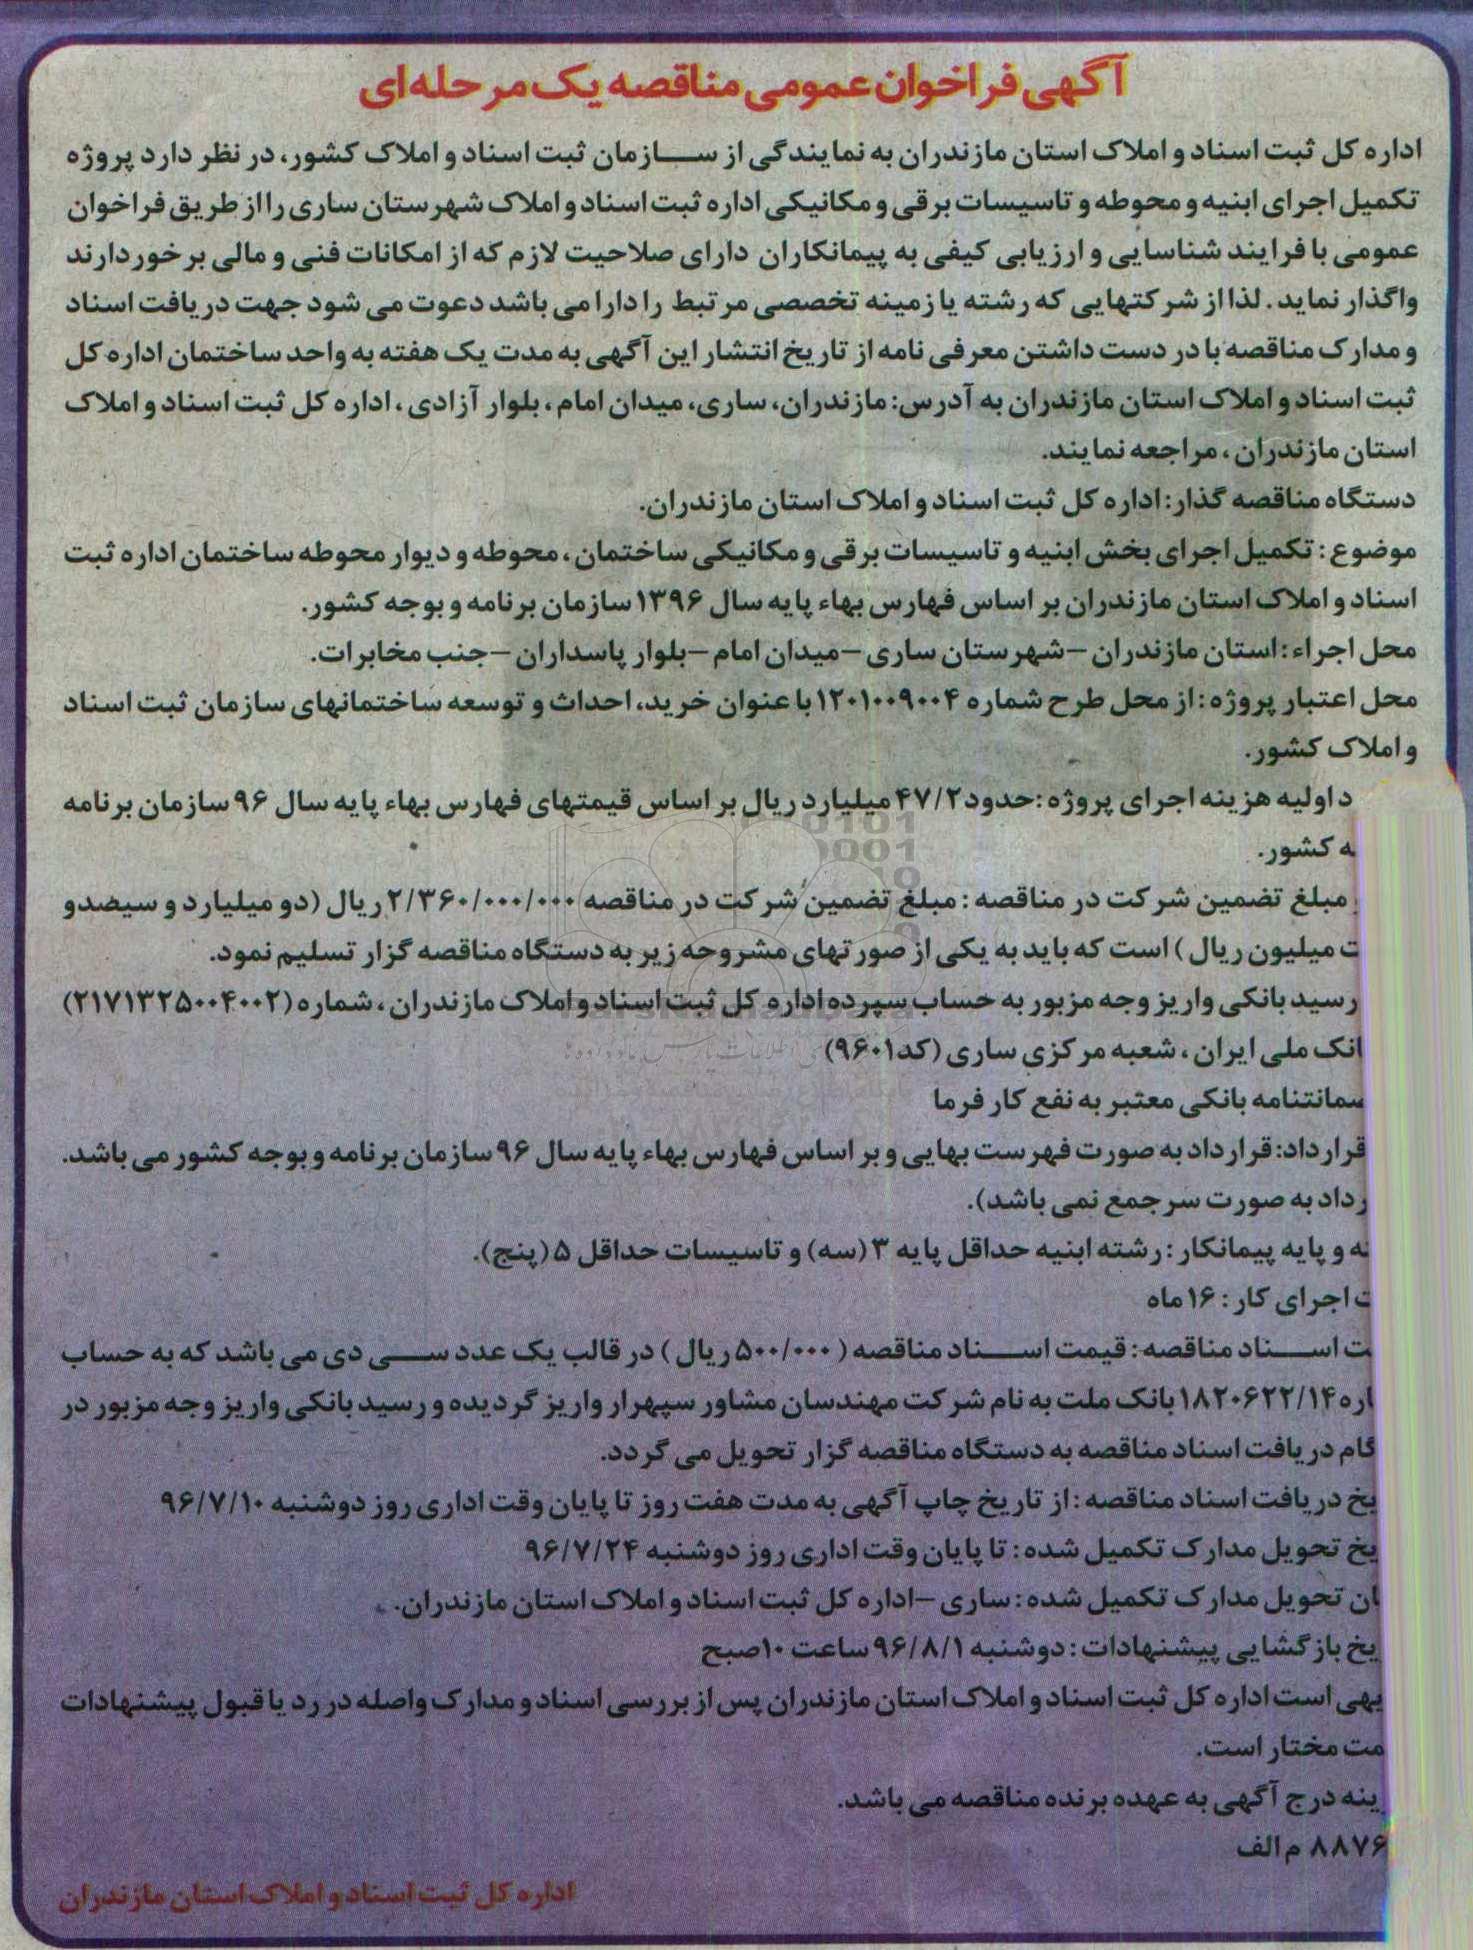 آگهی فراخوان عمومی مناقصه یک مرحله‌ای
اداره کل ثبت اسناد و املاک استان مازندران به نمایندگی از سازمان ثبت اسناد و املاک کشور، در نظر دارد پروژه
تکمیل اجرای ابنیه و محوطه و تاسیسات برقی و مکانیکی اداره ثبت اسناد و املاک شهرستان ساری را از طریق فراخوان
عمومی با فرایند شناسایی و ارزیابی کیفی به پیمانکاران دارای صلاحیت لازم که از امکانات فنی و مالی برخوردارند
واگذار نماید. لذا از شرکتهایی که رشته یا زمینه تخصصی مرتبط را دارا می باشد دعوت می شود جهت دریافت اسناد
و مدارک مناقصه با در دست داشتن معرفی نامه از تاریخ انتشار این آگهی به مدت یک هفته به واحد ساختمان اداره کل
ثبت اسناد و املاک استان مازندران به آدرس: مازندران، ساری، میدان امام، بلوار آزادی، اداره کل ثبت اسناد و املاک
استان مازندران، مراجعه نمایند.
دستگاه مناقصه گذار: اداره کل ثبت اسناد و املاک استان مازندران.
موضوع: تکمیل اجرای بخش ابنیه و تاسیسات برقی و مکانیکی ساختمان، محوطه و دیوار محوطه ساختمان اداره ثبت
اسناد و املاک استان مازندران بر اساس فهارس بهاء پایه سال ۱۳۹۶ سازمان برنامه و بوجه کشور.
محل اجراء: استان مازندران – شهرستان ساری – میدان امام – بلوار پاسداران – جنب مخابرات.
محل اعتبار پروژه: از محل طرح شماره ۱۲۰۱۰۰۹۰۰۴ با عنوان خرید، احداث و توسعه ساختمانهای سازمان ثبت اسناد
و املاک کشور.
د اولیه هزینه اجرای پروژه: حدود ۴۷/۲ میلیارد ریال بر اساس قیمتهای فهارس بهاء پایه سال ۹۶ سازمان برنامه
ه کشور.
و مبلغ تضمین شرکت در مناقصه: مبلغ تضمین شرکت در مناقصه ۲/۳۶۰/۰۰۰/۰۰۰ ریال (دو میلیارد و سیصد و
ت میلیون ریال) است که باید به یکی از صورتهای مشروحه زیر به دستگاه مناقصه گزار تسلیم نمود.
رسید بانکی واریز وجه مزبور به حساب سپرده اداره کل ثبت اسناد و املاک مازندران، شماره (۲۱۷۱۳۲۵۰۰۴۰۰۲)
انک ملی ایران، شعبه مرکزی ساری (کد ۹۶۰۱)
سمانتنامه بانکی معتبر به نفع کارفرما
قرارداد: قرارداد به صورت فهرست بهایی و بر اساس فهارس بهاء پایه سال ۹۶ سازمان برنامه و بوجه کشور می باشد.
رداد به صورت سرجمع نمی باشد).
ه و پایه پیمانکار: رشته ابنیه حداقل پایه ۳ (سه) و تاسیسات حداقل ۵ (پنج).
ت اجرای کار: ۱۶ ماه
ت اسناد مناقصه: قیمت اسناد مناقصه (۵۰۰/۰۰۰ ریال) در قالب یک عدد سی دی می باشد که به حساب
اره ۱۸۲۰۶۲۲/۱۴ بانک ملت به نام شرکت مهندسان مشاور سپهرار واریز گردیده و رسید بانکی واریز وجه مزبور در
گام دریافت اسناد مناقصه به دستگاه مناقصه گزار تحویل می گردد.
یخ دریافت اسناد مناقصه: از تاریخ چاپ آگهی به مدت هفت روز تا پایان وقت اداری روز دوشنبه ۹۶/۷/۱۰
یخ تحویل مدارک تکمیل شده: تا پایان وقت اداری روز دوشنبه ۹۶/۷/۲۴
ان تحویل مدارک تکمیل شده: ساری – اداره کل ثبت اسناد و املاک استان مازندران.
یخ بازگشایی پیشنهادات: دوشنبه ۹۶/۸/۱ ساعت ۱۰ صبح
یهی است اداره کل ثبت اسناد و املاک استان مازندران پس از بررسی اسناد و مدارک واصله در رد یا قبول پیشنهادات
مت مختار است.
ینه درج آگهی به عهده برنده مناقصه می باشد.
۸۸۷۶ م الف
اداره کل ثبت اسناد و املاک استان مازندران